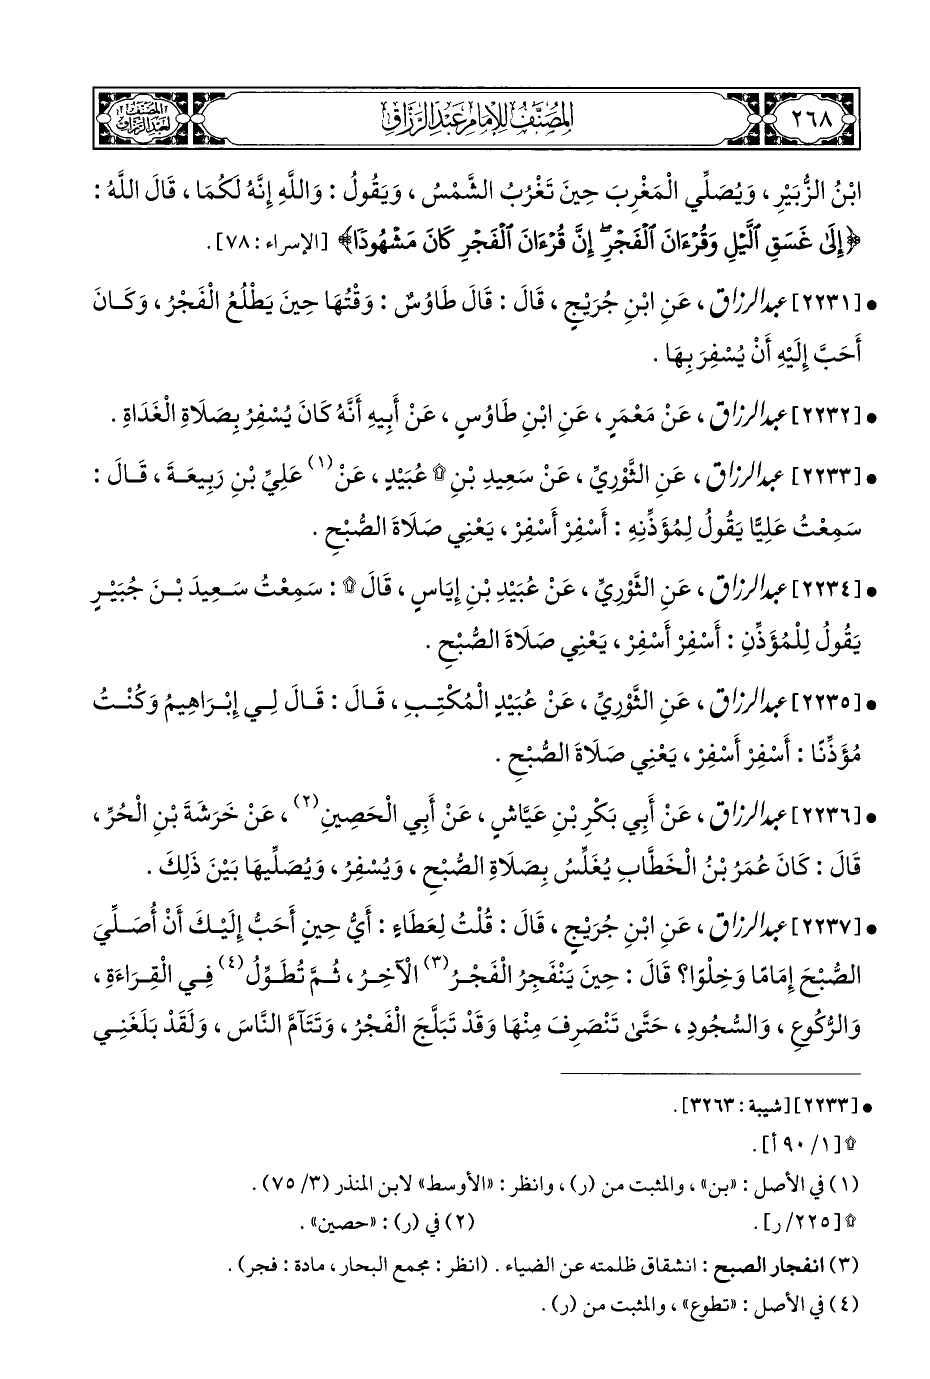 ٢٦٨
المصنف للإمام عبد الرزاق
المصنف
لعبد الرزاق
ابْنُ الزُّبَيْرِ ، وَيُصَلِّي الْمَغْرِبَ حِينَ تَغْرُبُ الشَّمْسُ ، وَيَقُولُ : وَاللَّهِ إِنَّهُ لَكُمَا ، قَالَ اللَّهُ :
﴿إِلَىٰ غَسَقِ ٱلَّيْلِ وَقُرْءَانَ ٱلْفَجْرِ ۖ إِنَّ قُرْءَانَ ٱلْفَجْرِ كَانَ مَشْهُودًا﴾ [الإسراء : ٧٨] .
• [٢٢٣١] عبد الرزاق ، عَنِ ابْنِ جُرَيْجٍ ، قَالَ : قَالَ طَاوُسٌ : وَقْتُهَا حِينَ يَطْلُعُ الْفَجْرُ ، وَكَانَ
أَحَبَّ إِلَيْهِ أَنْ يُسْفِرَ بِهَا .
• [٢٢٣٢] عبد الرزاق ، عَنْ مَعْمَرٍ ، عَنِ ابْنِ طَاوُسٍ ، عَنْ أَبِيهِ أَنَّهُ كَانَ يُسْفِرُ بِصَلَاةِ الْغَدَاةِ .
• [٢٢٣٣] عبد الرزاق ، عَنِ الثَّوْرِيِّ ، عَنْ سَعِيدِ بْنِ ۩ عُبَيْدٍ ، عَنْ (١) عَلِيِّ بْنِ رَبِيعَةَ ، قَالَ :
سَمِعْتُ عَلِيًّا يَقُولُ لِمُؤَذِّنِهِ : أَسْفِرْ أَسْفِرْ ، يَعْنِي صَلَاةَ الصُّبْحِ .
• [٢٢٣٤] عبد الرزاق ، عَنِ الثَّوْرِيِّ ، عَنْ عُبَيْدِ بْنِ إِيَاسٍ ، قَالَ ۩ : سَمِعْتُ سَعِيدَ بْنَ جُبَيْرٍ
يَقُولُ لِلْمُؤَذِّنِ : أَسْفِرْ أَسْفِرْ ، يَعْنِي صَلَاةَ الصُّبْحِ .
• [٢٢٣٥] عبد الرزاق ، عَنِ الثَّوْرِيِّ ، عَنْ عُبَيْدٍ الْمُكْتِبِ ، قَالَ : قَالَ لِي إِبْرَاهِيمُ وَكُنْتُ
مُؤَذِّنًا : أَسْفِرْ أَسْفِرْ ، يَعْنِي صَلَاةَ الصُّبْحِ .
• [٢٢٣٦] عبد الرزاق ، عَنْ أَبِي بَكْرِ بْنِ عَيَّاشٍ ، عَنْ أَبِي الْحَصِينِ (٢) ، عَنْ خَرَشَةَ بْنِ الْحُرِّ ،
قَالَ : كَانَ عُمَرُ بْنُ الْخَطَّابِ يُغَلِّسُ بِصَلَاةِ الصُّبْحِ ، وَيُسْفِرُ ، وَيُصَلِّيهَا بَيْنَ ذَلِكَ .
• [٢٢٣٧] عبد الرزاق ، عَنِ ابْنِ جُرَيْجٍ ، قَالَ : قُلْتُ لِعَطَاءٍ : أَيُّ حِينٍ أَحَبُّ إِلَيْكَ أَنْ أُصَلِّيَ
الصُّبْحَ إِمَامًا وَخِلْوًا؟ قَالَ : حِينَ يَنْفَجِرُ الْفَجْرُ (٣) الْآخِرُ ، ثُمَّ تُطَوِّلُ (٤) فِي الْقِرَاءَةِ ،
وَالرُّكُوعِ ، وَالسُّجُودِ ، حَتَّىٰ تَنْصَرِفَ مِنْهَا وَقَدْ تَبَلَّجَ الْفَجْرُ ، وَتَتَامَّ النَّاسَ ، وَلَقَدْ بَلَغَنِي
• [٢٢٣٣] [شيبة : ٣٢٦٣] .
۩ [١/ ٩٠ أ] .
(١) في الأصل : «بن» ، والمثبت من (ر) ، وانظر : «الأوسط» لابن المنذر (٣/ ٧٥) .
۩ [٢٢٥/ ر] . (٢) في (ر) : «حصين» .
(٣) انفجار الصبح : انشقاق ظلمته عن الضياء . (انظر : مجمع البحار ، مادة : فجر) .
(٤) في الأصل : «تطوع» ، والمثبت من (ر) .